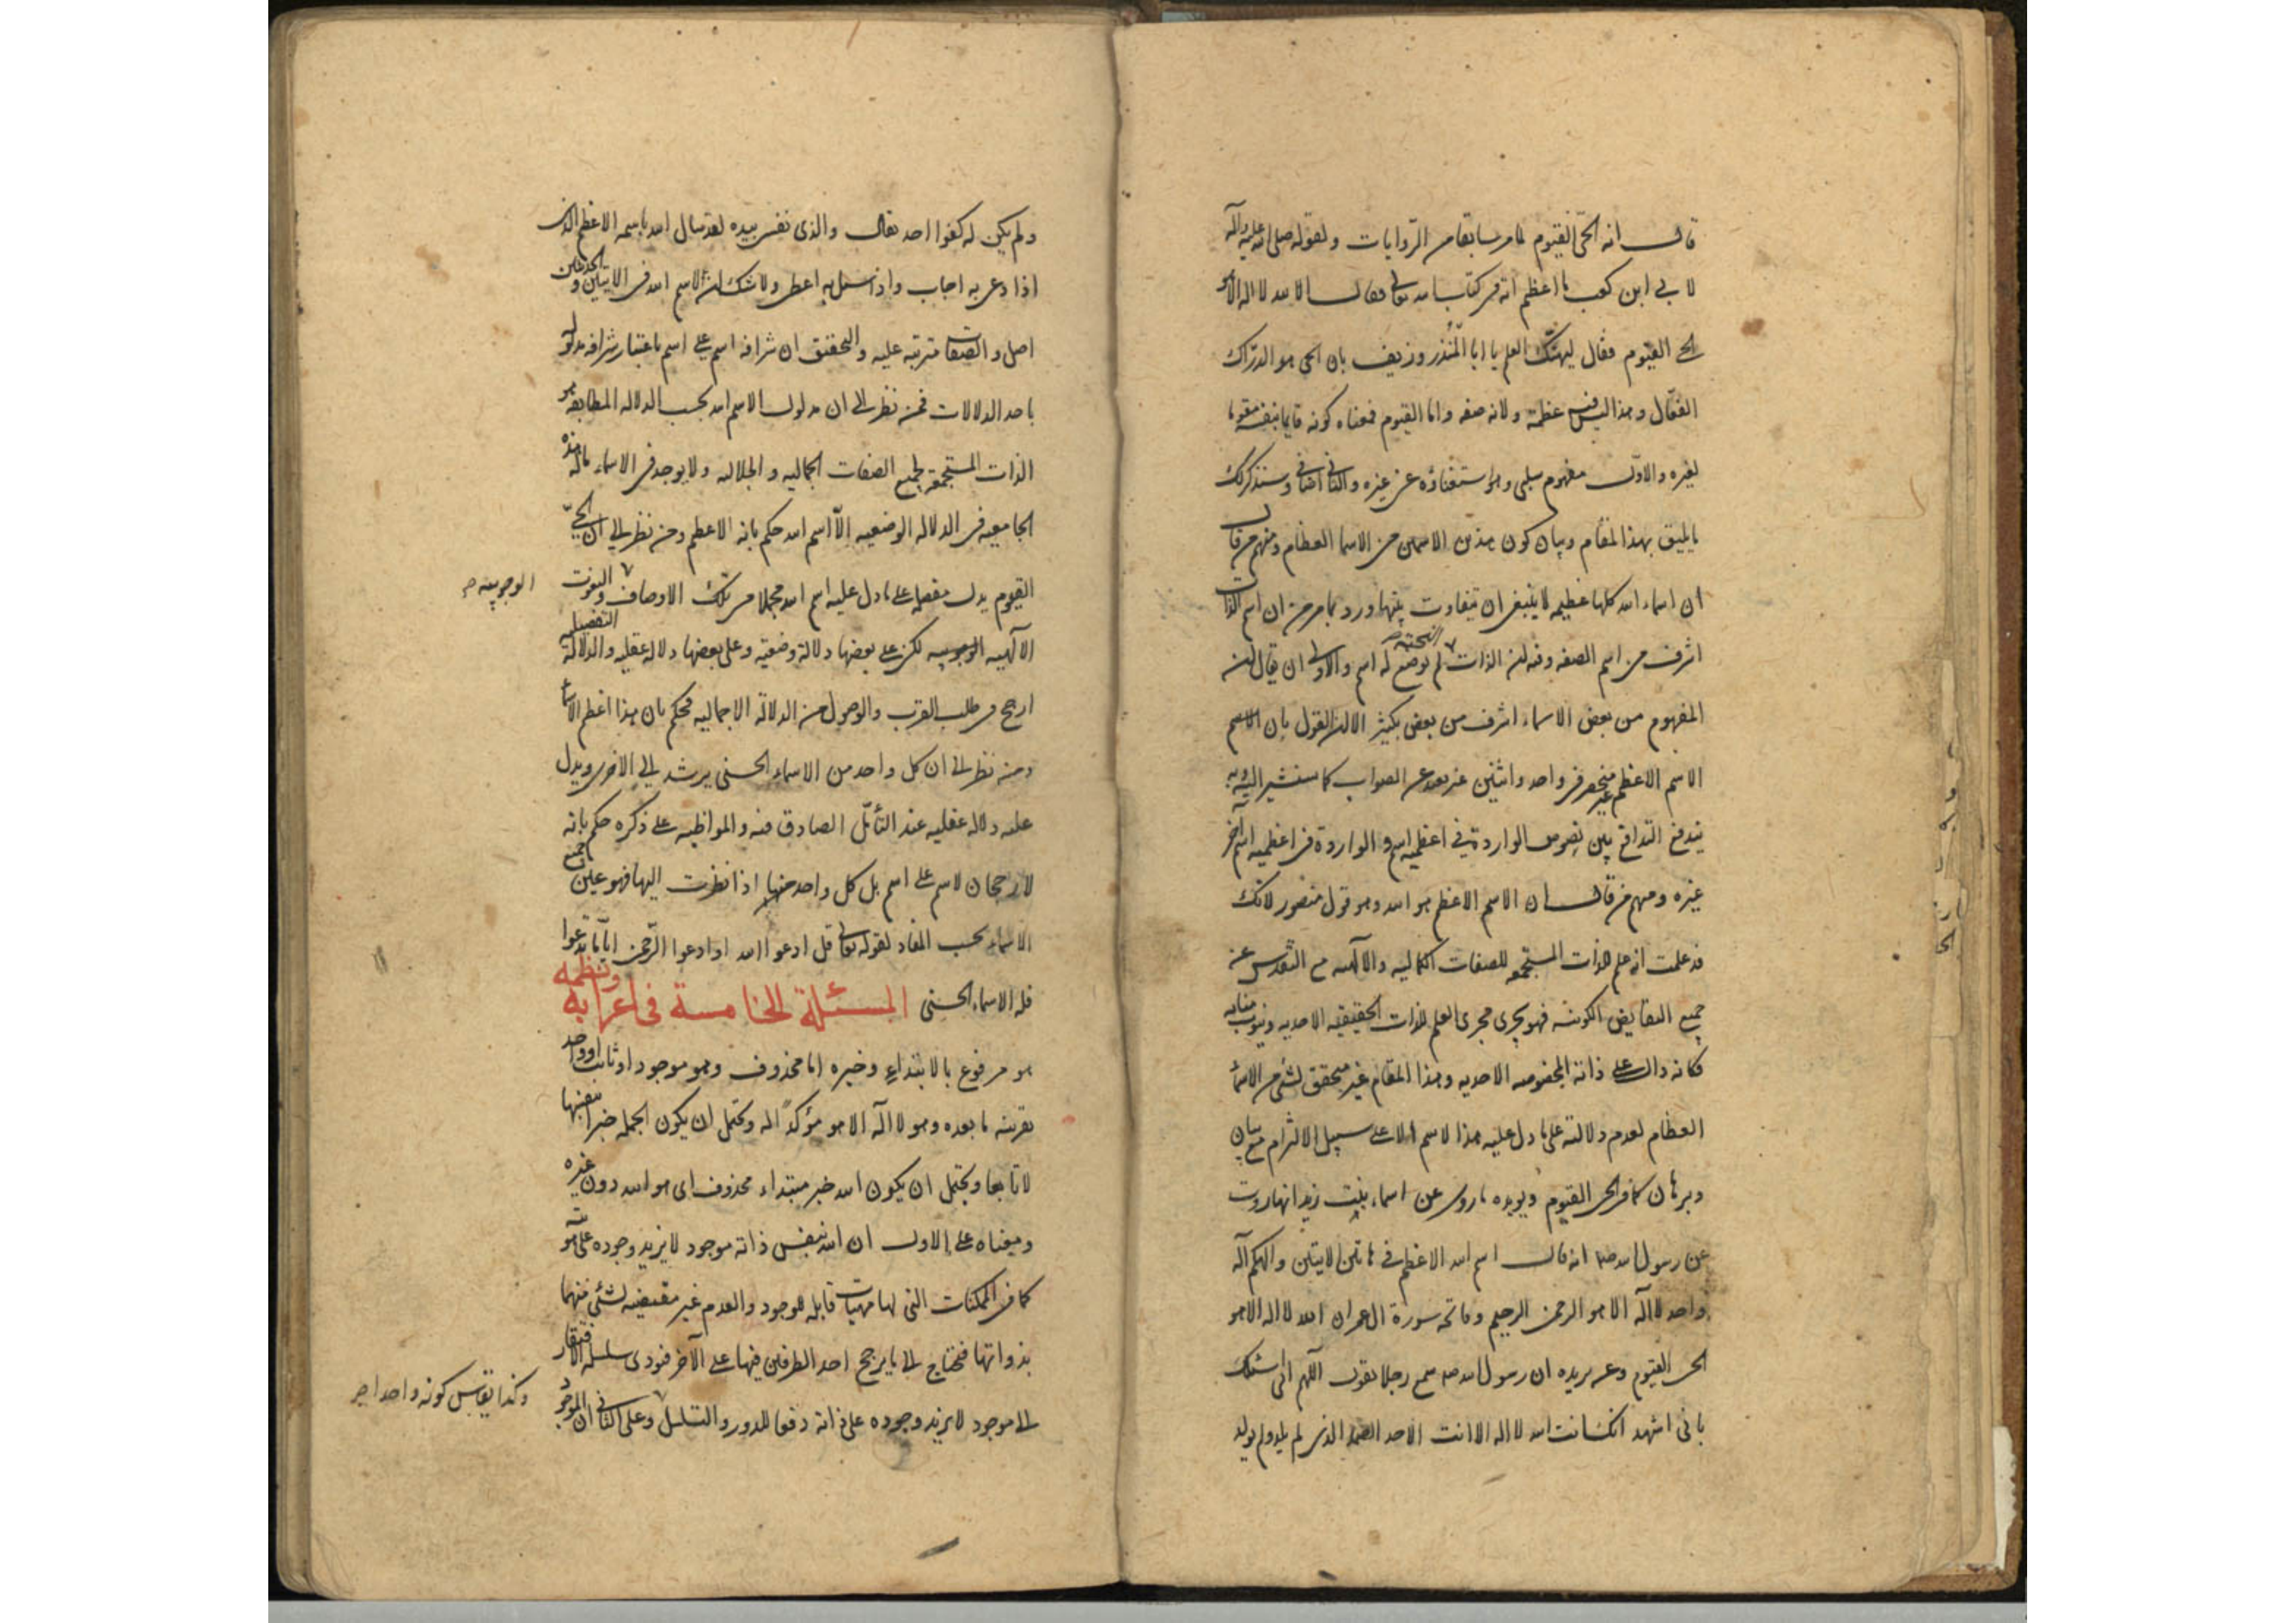 قال انه الحي القيوم لما مر سابقا من الروايات ولقوله صلى الله عليه وآله
لابي ابن كعب ما اعظم آية في كتاب الله تعالى فقال الله لا اله الا هو
الحي القيوم فقال ليهنك العلم يا ابا المنذر وزيف بان الحي هو الدراك
الفعال وهذا ليس فيه عظمة ولانه صفه واما القيوم فمعناه كونه قايما بنفسه مقوما
لغيره والاول مفهوم سلبي وهو استغناؤه عن غيره والثاني اضافي وسنذكر لك
ما يليق بهذا المقام وبيان كون هذين الاسمين من الاسما العظام ومنهم من قال
ان اسماء الله كلها عظيمه لا ينبغي ان تتفاوت بينها ورد بما مر من ان اسم الذات
اشرف من اسم الصفه وفيه ان الذات البحتة لم يوضع له اسم والاولى ان يقال ان
المفهوم من بعض الاسماء اشرف من بعض بكثير الا ان القول بان الاسم
الاسم الاعظم منحصر في واحد واثنين غير بعيد عن الصواب كما سنشير اليه وبه
يندفع التدافع بين نصوص الواردة في اعظميه اسم والواردة في اعظميه اسم آخر
غيره ومنهم من قال ان الاسم الاعظم هو الله وهو قول منصور لانك
قد علمت انه علم للذات المستجمعه للصفات الكماليه والالهيه مع التقدس عن
جميع النقايض الكونيه فهو يجري مجرى العلم للذات الحقيقيه الاحديه وينوب منابه
فكانه دال على ذاته المخصوصه الاحديه وهذا المقام غير متحقق لشئ من الاسماء
العظام لعدم دلالته على ما دل عليه هذا لاسم الا على سبيل الالتزام مع بيان
وبرهان كما في الحي القيوم ويويده ما روى عن اسماء بنت زيد انها روت
عن رسول الله صلعم انه قال اسم الله الاعظم في هاتين الايتين والهكم آله
واحد لا اله الا هو الرحمن الرحيم وفاتحه سورة ال عمران الله لا اله الا هو
الحي القيوم وعن بريده ان رسول الله صلعم سمع رجلا يقول اللهم اني اسئلك
باني اشهد انك انت الله لا اله الا انت الاحد الصمد الذي لم يلد ولم يولد
ولم يكن له كفوا احد فقال والذي نفسي بيده لقد سال الله باسمه الاعظم الذي
اذا دعي به اجاب واذا سئل به اعطى ولا شك ان الاسم الله في الايتين والحديثين
اصل والصفات مترتبه عليه والتحقيق ان شرافه اسم على اسم باعتبار شرافه مدلوله
باحد الدلالات فمن نظر الى ان مدلول الاسم الله بحسب الدلاله المطابقه هو
الذات المستجمعة لجميع الصفات الجماليه والجلاليه ولا يوجد في الاسماء ماله هذه
الجامعيه في الدلاله الوضعيه الا اسم الله حكم بانه الاعظم ومن نظر الى ان الحي
القيوم يدل مفصلا على ما دل عليه اسم الله مجملا من تلك الاوصاف والنعوت
الوجوبيه صح
الالهيه لكن على بعضها دلالة وضعيه وعلى بعضها دلاله عقليه والدلالة التفصيليه
ارجح في طلب القرب والوصول من الدلالة الاجماليه فحكم بان هذا اعظم الاسماء
ومن نظر الى ان كل واحد من الاسماء الحسنى يرشد الى الاخرى ويدل
عليه دلاله عقليه عند التأمل الصادق فيه والمواظبه على ذكره حكم بانه
لا رجحان لاسم على اسم بل كل واحد منها اذا نظرت اليها فهو عين جميع
الاسماء بحسب المفاد لقوله تعالى قل ادعوا الله او ادعوا الرحمن ايا ما تدعوا
فله الاسماء الحسنى المسئلة الخامسة في اعرابه ونظمه
هو مرفوع بالابتداء وخبره اما محذوف وهو موجود او ثابت او واحد
بقرينه ما بعده وهو لا اله الا هو مؤكدا له ويحتمل ان يكون الجمله خبرا بنفسها
لا تابعا ويحتمل ان يكون الله خبر مبتداء محذوف اى هو الله دون غيره
ومعناه على الاول ان الله بنفس ذاته موجود لا يزيد وجوده على
كما في الممكنات التي لها مهيات قابله للوجود والعدم غير مقتضيه لشئ منهما
بذواتها فتحتاج الى ما يرجح احد الطرفين فيها على الآخر فتودى سلسله الافتقار
الى موجود لا يزيد وجوده على ذاته دفعا للدور والتسلسل وعلى الثاني ان الموجود
وكذا يقاس كونه واحدا صح